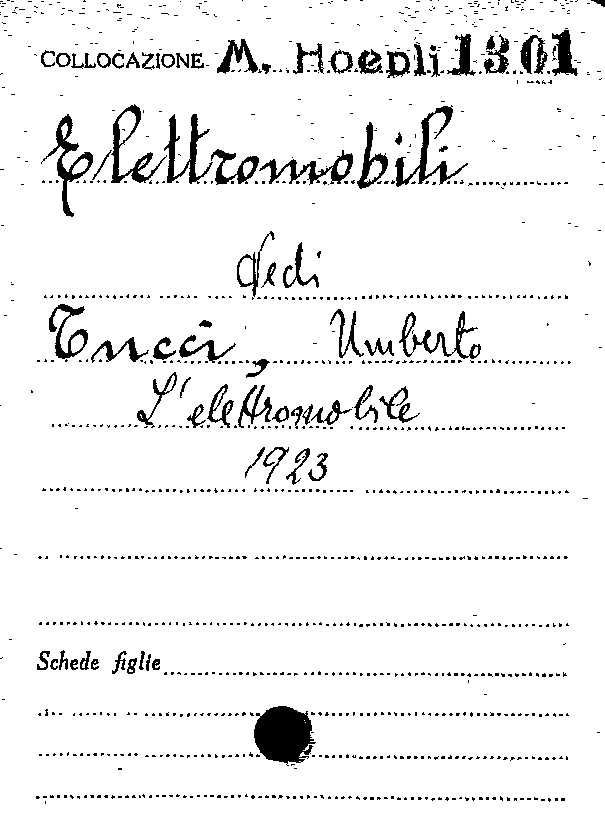 COLLOCAZIONE M. Hoepli 1301
Elettromobili
Vedi
Tucci, Umberto
L'elettromobile
1923
Schede figlie